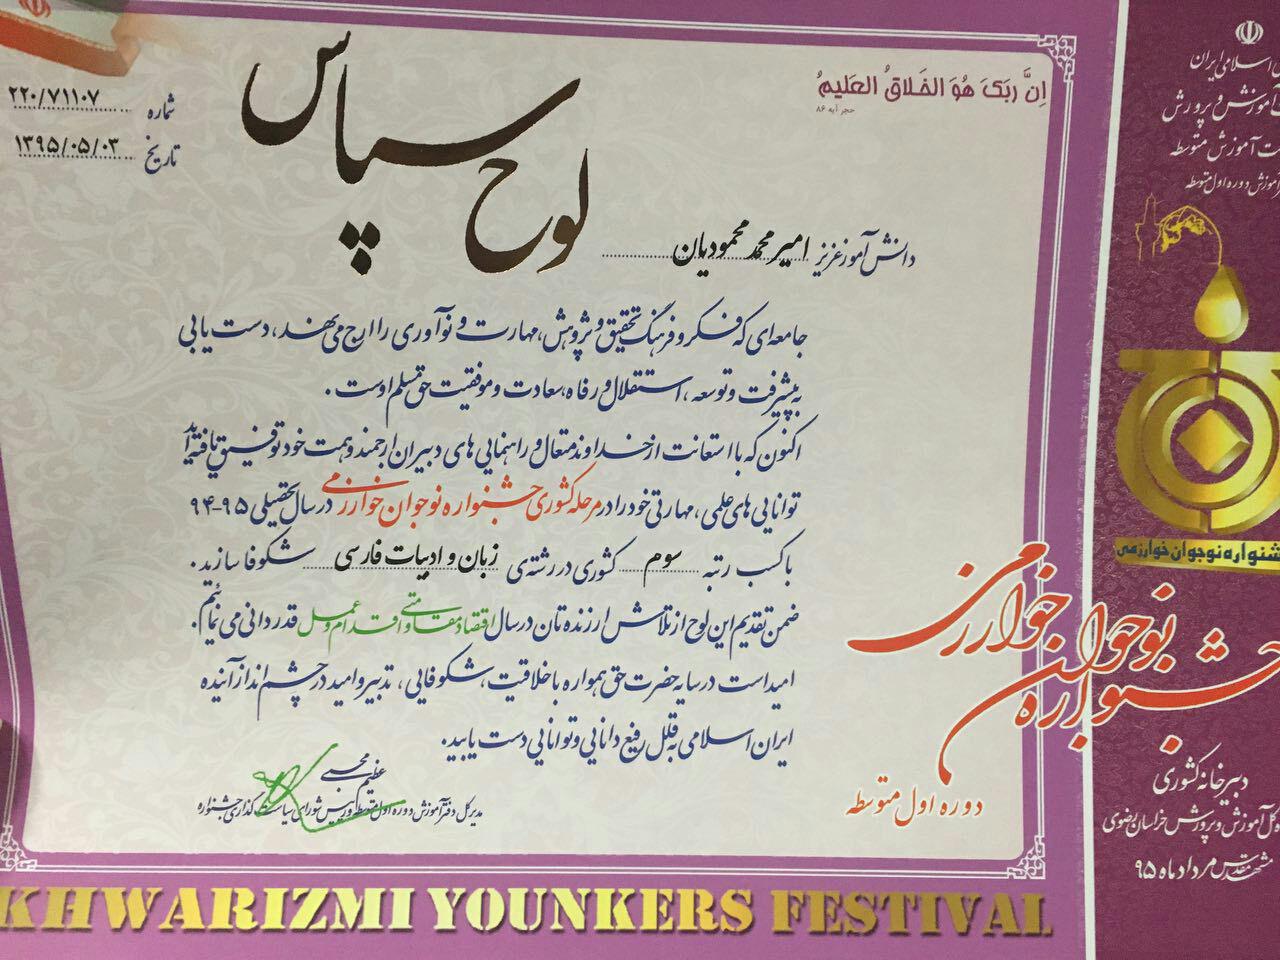 إِنَّ رَبَّکَ هُوَ الخَلاقُ العَلیمُ
حجر آیه ۸۶
شماره ۲۲۰/۷۱۱۰۷
تاریخ ۱۳۹۵/۰۵/۰۳
لوح سپاس
دانش آموز عزیز امیرمحمد محمودیان
جامعه ای که فکر و فرهنگ تحقیق و پژوهش، مهارت و نوآوری را ارج می نهد، دست یابی
به پیشرفت و توسعه، استقلال و رفاه، سعادت و موفقیت حق مسلم اوست.
اکنون که با استعانت از خداوند متعال و راهنمایی های دبیران ارجمند و همت خود توفیق یافته اید
توانایی های علمی، مهارتی خود را در مرحله کشوری جشنواره نوجوان خوارزمی در سال تحصیلی ۹۵-۹۴
با کسب رتبه سوم کشوری در رشته ی زبان و ادبیات فارسی شکوفا سازید.
ضمن تقدیم این لوح از تلاش ارزنده تان در سال اقتصاد مقاومتی اقدام و عمل قدردانی می نمائیم.
امید است در سایه حضرت حق همواره با خلاقیت، شکوفایی، تدبیر و امید در چشم انداز آینده
ایران اسلامی به قلل رفیع دانایی و توانایی دست یابید.
عظیم محبی
مدیرکل دفتر آموزش دوره اول متوسطه و رییس شورای سیاست گذاری جشنواره
اسلامی ایران
آموزش و پرورش
آموزش متوسطه
آموزش دوره اول متوسطه
جشنواره نوجوان خوارزمی
جشنواره نوجوان خوارزمی
دوره اول متوسطه
دبیرخانه کشوری
کل آموزش و پرورش خراسان رضوی
مشهد مقدس مرداد ماه ۹۵
KHWARIZMI YOUNKERS FESTIVAL